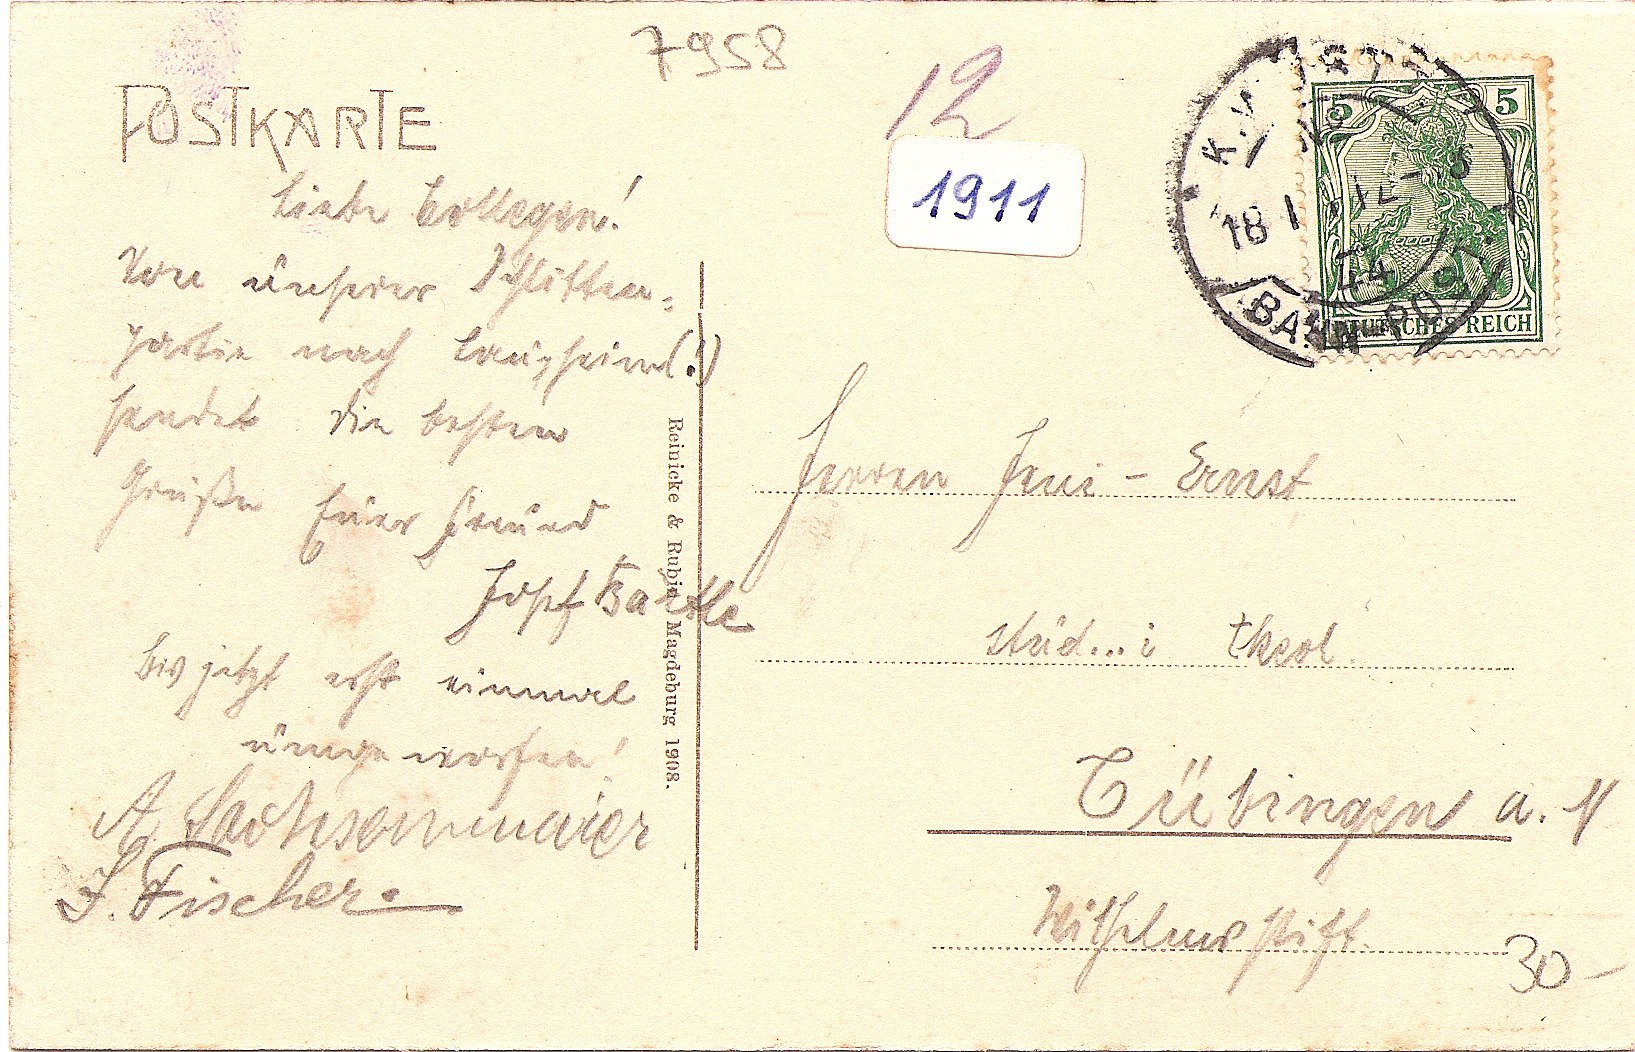 7958
12
POSTKARTE
1911
5 5
18 1
BAHNPOST
DEUTSCHES REICH
Liebe Collegen!
Von unserer Schlitten-
partie nach
sendet die besten
Grüße Euer Freund
Josef
bis jetzt erst einmal
umgeworfen!
A. Sachsenmaier
J. Fischer.
Reinicke & Rubin, Magdeburg 1908.
Herren - Ernst
stud... theol.
Tübingen a. N
Wilhelmsstift.
30 -